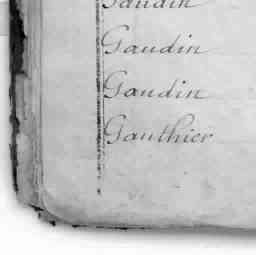 Gaudin
Gaudin
Gaudin
Gauthier